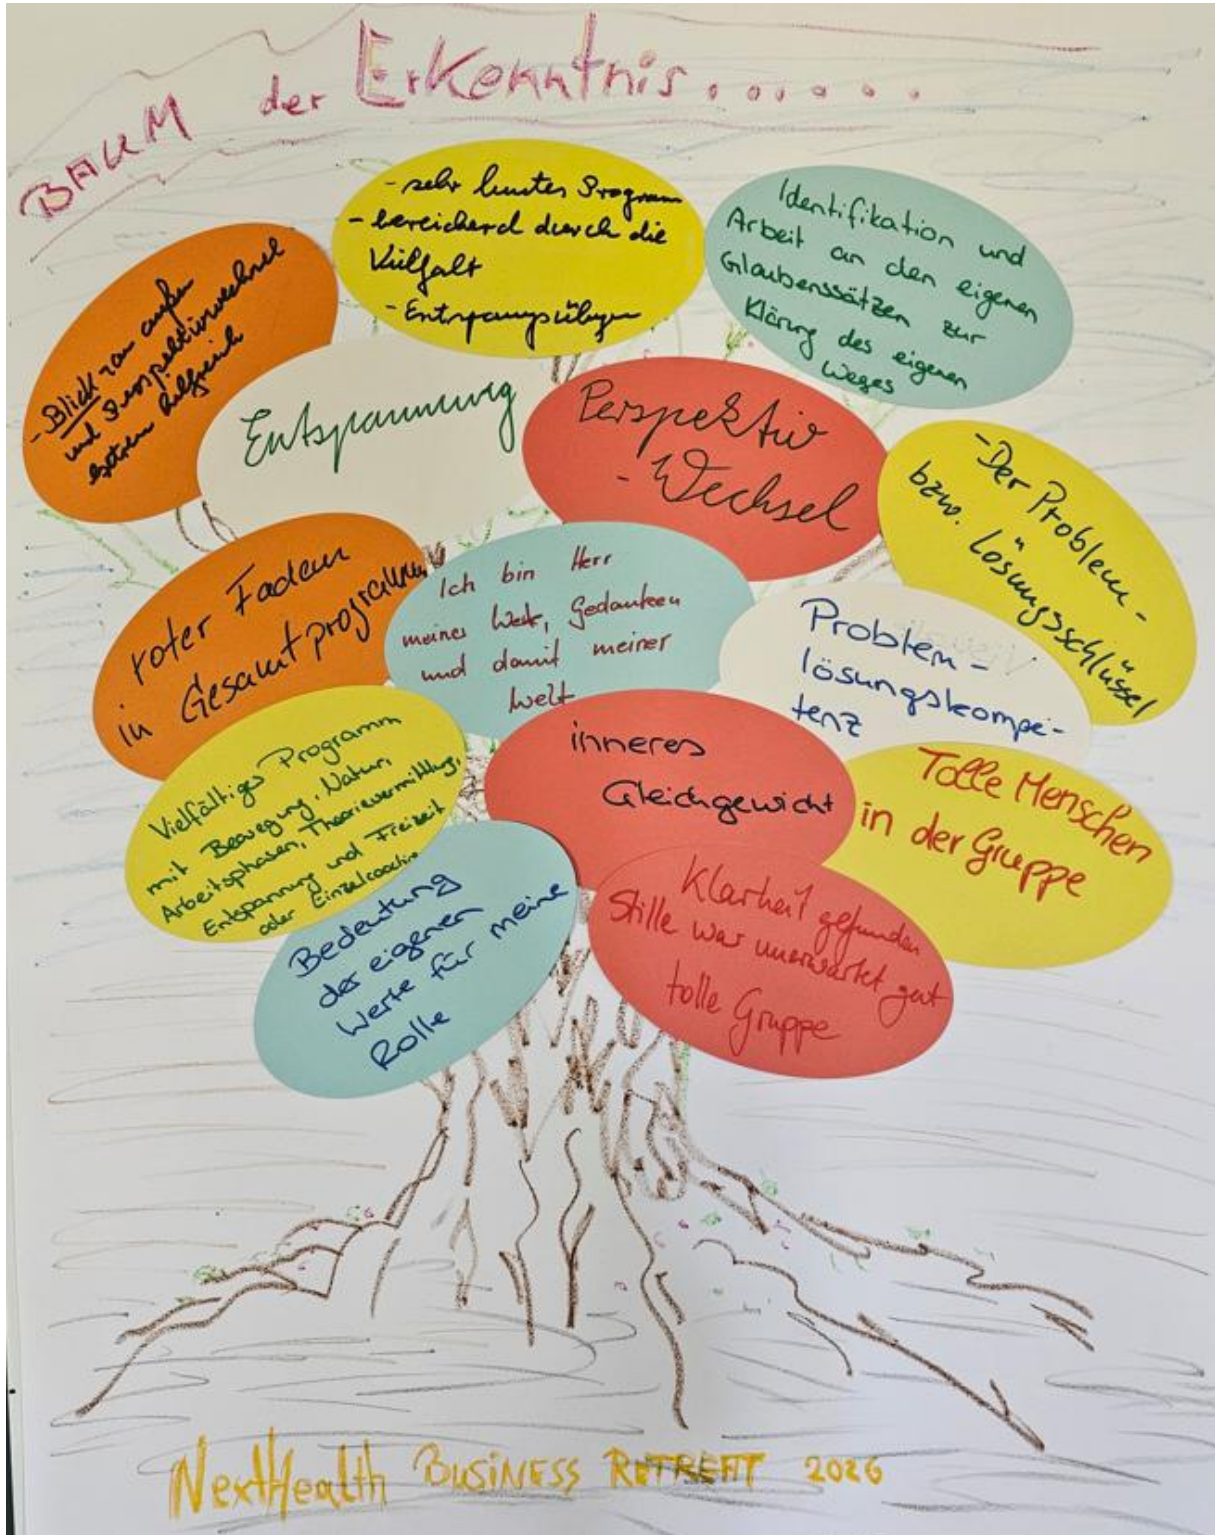 BAUM der Erkenntnis......
- sehr buntes Program
- bereichernd durch die
Vielfalt
- Entspannungsübungen
Identifikation und
Arbeit an den eigenen
Glaubenssätzen zur
Klärung des eigenen
Weges
- Blick von außen
und Perspektivwechsel
extrem hilfreich
Entspannung
Perspektiv
- Wechsel
- Der Problem-
bzw. Lösungsschlüssel
roter Faden
in Gesamtprogramm
Ich bin Herr
meiner Gedanken
und damit meiner
Welt
Problem-
lösungskompe-
tenz
Vielfältiges Programm
mit Bewegung, Natur,
Arbeitsphasen, Theorievermittlung,
Entspannung und Freizeit
oder Einzelcoaching
inneres
Gleichgewicht
Tolle Menschen
in der Gruppe
Bedeutung
der eigenen
Werte für meine
Rolle
Klarheit gefunden
Stille war unerwartet gut
tolle Gruppe
NextHealth BUSINESS RETREAT 2026